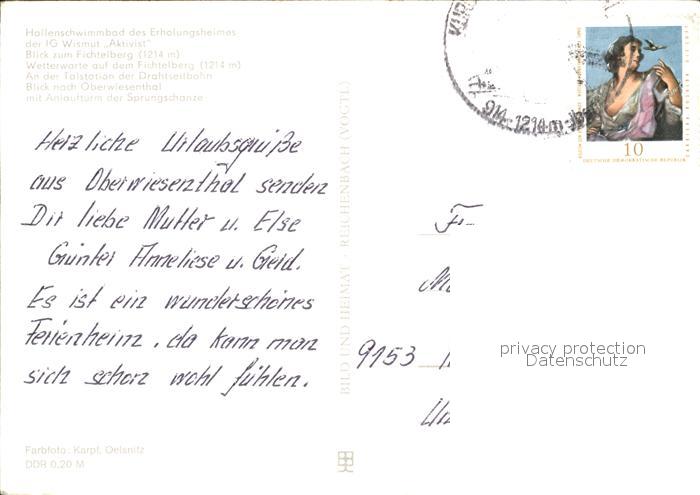 Hallenschwimmbad des Erholungsheimes
der IG Wismut „Aktivist"
Blick zum Fichtelberg (1214 m)
Wetterwarte auf dem Fichtelberg (1214 m)
An der Talstation der Drahtseilbahn
Blick nach Oberwiesenthal
mit Anlaufturm der Sprungschanze
KUR
914-1214 m
10
DEUTSCHE DEMOKRATISCHE REPUBLIK
Herzliche Urlaubsgrüße
aus Oberwiesenthal senden
Dir liebe Mutter u. Else
Günter Anneliese u. Gerd.
Es ist ein wunderschönes
Ferienheim, da kann man
sich schon wohl fühlen.
BILD UND HEIMAT · REICHENBACH (VOGTL)
9153
privacy protection
Datenschutz
Farbfoto: Karpf, Oelsnitz
DDR 0,20 M